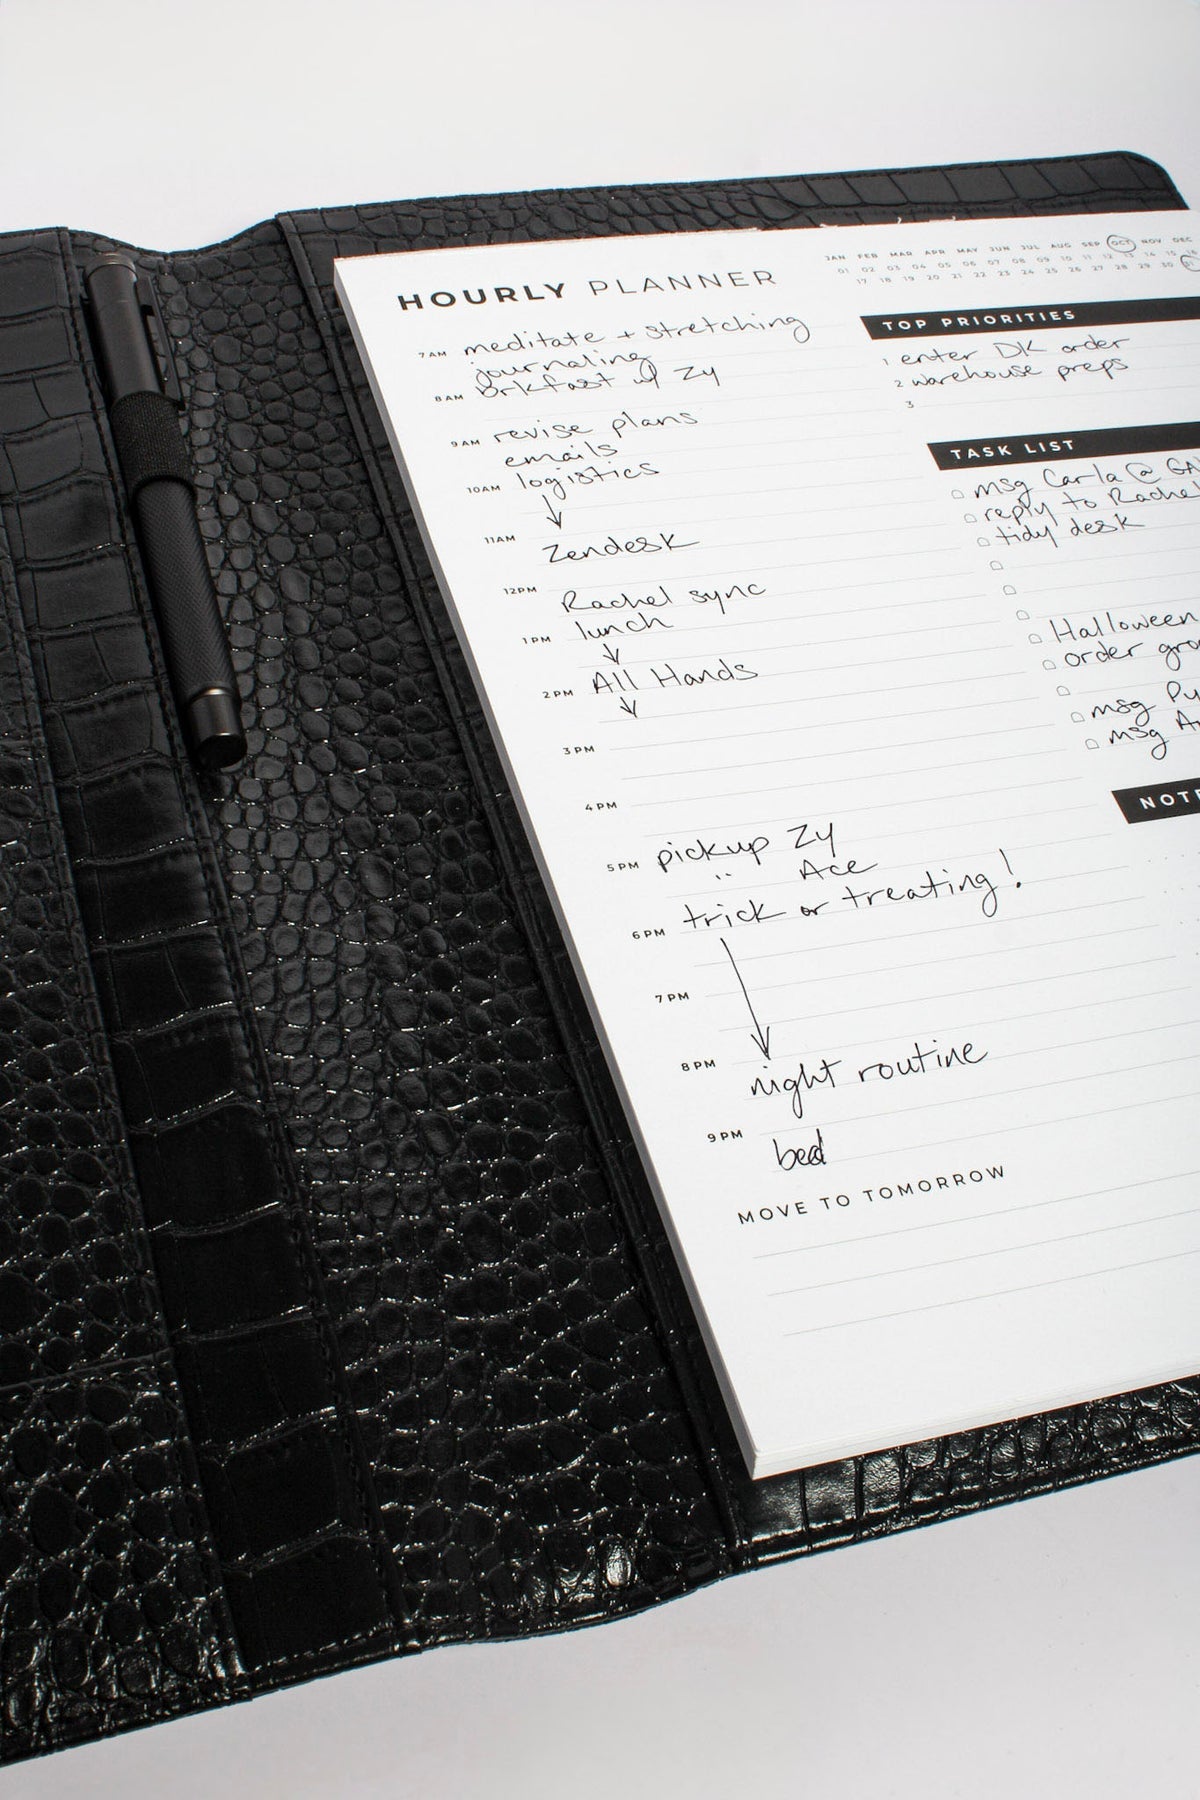 HOURLY PLANNER
JAN FEB MAR APR MAY JUN JUL AUG SEP OCT NOV DEC
01 02 03 04 05 06 07 08 09 10 11 12 13 14 15 16
17 18 19 20 21 22 23 24 25 26 27 28 29 30 31
7AM meditate + stretching
journaling
8AM brkfast w/ Zy
9AM revise plans
emails
10AM logistics
11AM
Zendesk
12PM
Rachel sync
1PM lunch
2PM All Hands
3PM
4PM
5PM pickup Zy
" Ace
6PM trick or treating!
7PM
8PM
night routine
9PM
bed
MOVE TO TOMORROW
TOP PRIORITIES
1 enter DK order
2 warehouse preps
3
TASK LIST
msg Carla @
reply to Rachel
tidy desk
Halloween
order
msg
msg